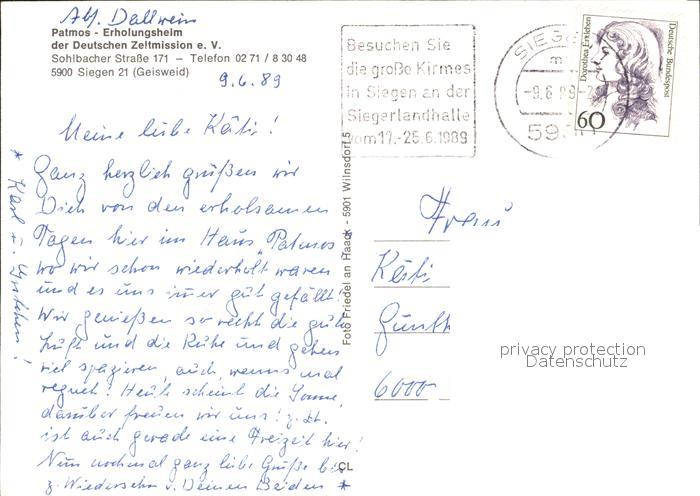 Abs. Dallwein
Patmos - Erholungsheim
der Deutschen Zeltmission e. V.
Sohlbacher Straße 171 – Telefon 02 71 / 8 30 48
5900 Siegen 21 (Geisweid)
9.6.89
Besuchen Sie
die große Kirmes
in Siegen an der
Siegerlandhalle
vom 17.-25.6.1989
SIEGEN
m
-9.6.89-
59
Dorothea Erxleben
Deutsche Bundespost
60
Meine liebe Käti!
Ganz herzlich grüßen wir
Dich von den erholsamen
Tagen hier im Haus „Patmos"
wo wir schon wiederholt waren
und es uns immer gut gefällt.
Wir genießen so recht die gute
Luft und die Ruhe und gehen
viel spazieren, auch wenns mal
regnet! Heute scheint die Sonne,
darüber freuen wir uns! z. Zt.
ist auch gerade eine Freizeit hier!
Nun nochmal ganz liebe Grüße b.
z. Wiedersehn v. Deinen Beiden *
* Karl u. Gretchen!
Foto Friedel an Haack - 5901 Wilnsdorf 5
CL
Frau
Käti
Günth
6000
privacy protection
Datenschutz